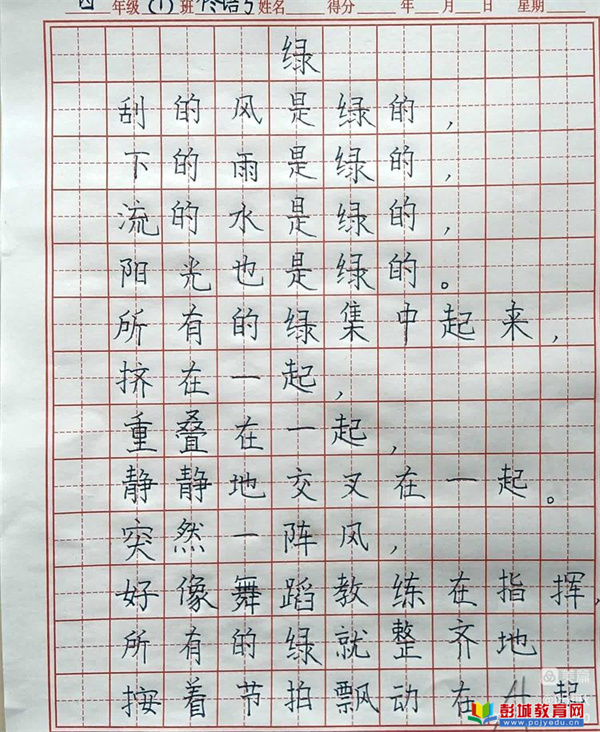 四 年级 (1) 班 姓名 得分 年 月 日 星期
绿
刮的风是绿的，
下的雨是绿的，
流的水是绿的，
阳光也是绿的。
所有的绿集中起来，
挤在一起，
重叠在一起，
静静地交叉在一起。
突然一阵风，
好像舞蹈教练在指挥，
所有的绿就整齐地
按着节拍飘动在 起
彭城教育网
www.pcjyedu.cn